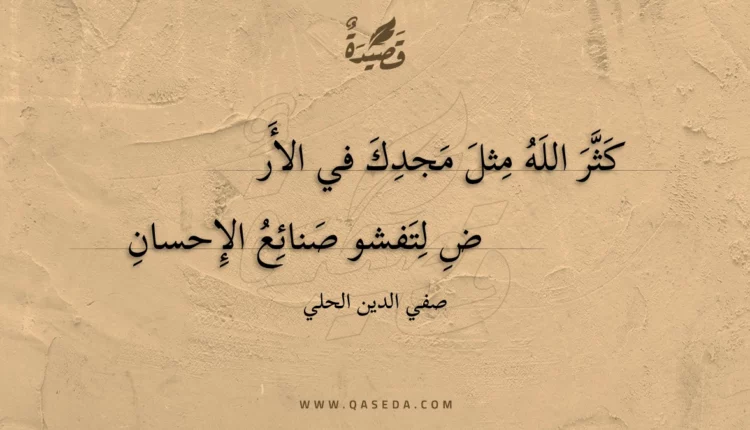 قَصِيدَةٌ
كَثَّرَ اللَهُ مِثلَ مَجدِكَ في الأَر
ضِ لِتَفشو صَنائِعُ الإِحسانِ
صفي الدين الحلي
WWW.QASEDA.COM